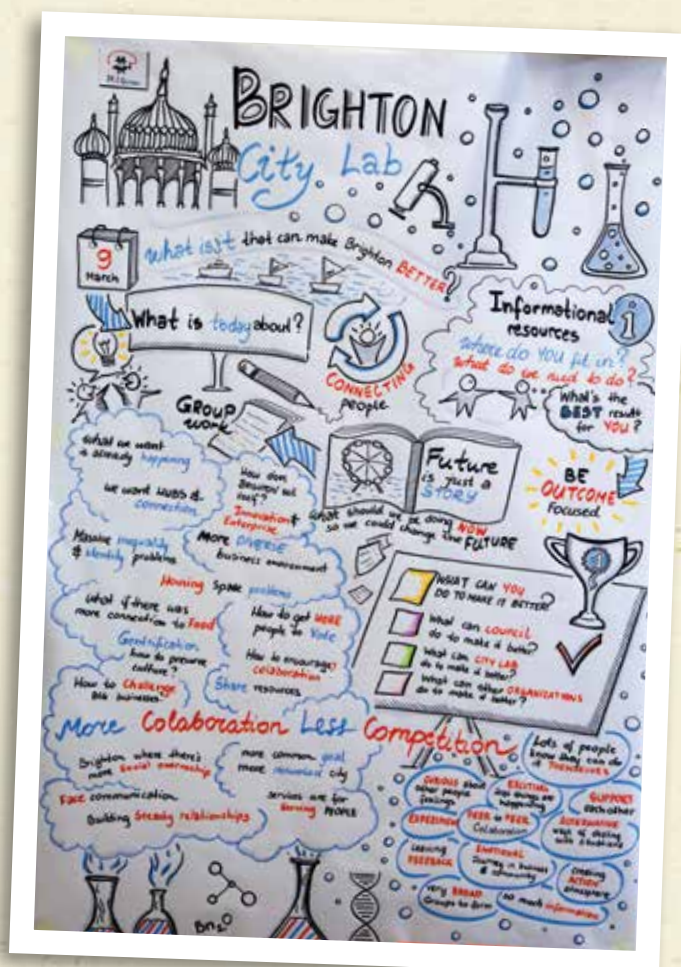 BRIGHTON
City Lab
9
March
What isit that can make Brighton BETTER?
What is today about?
CONNECTING
people
Informational
resources
1
Where do YOU fit in?
What do we need to do?
What's the
BEST result
for YOU?
GROUP
work
Future
is just a
STORY
What should we be doing NOW
so we could change the FUTURE
BE
OUTCOME
Focused
What we want
is already happening
we want HUBS &
connection
Massive inequality
& identity problems
How does
Innovation &
Enterprise
More DIVERSE
business environment
Housing space problems
What if there was
more connection to Food
How to get MORE
people to Vote
Gentrification
how to preserve
culture?
How to encourage
colaboration
How to Challenge
BIG businesses?
Share resources
WHAT CAN YOU
DO TO MAKE IT BETTER?
What can COUNCIL
do to make it better?
What can CITY LAB
do to make it better?
What can other ORGANIZATIONS
do to make it better?
More Colaboration Less Competition
Brighton where there's
more Social ownership
more common goal
more city
Face communication
Building Steady relationships
services are for
Serving PEOPLE
Lots of people
know they can do
it THEMSELVES
CURIOUS about
other people
feelings
EXCITING
things are
happening
SUPPORT
each other
EXPERIMENT
PEER to PEER
Colaboration
ALTERNATIVE
ways of dealing
with situations
Leaving
FEEDBACK
EMOTIONAL
Journey in business
& community
Creating
ACTION
atmosphere
very BROAD
Groups to form
so much information